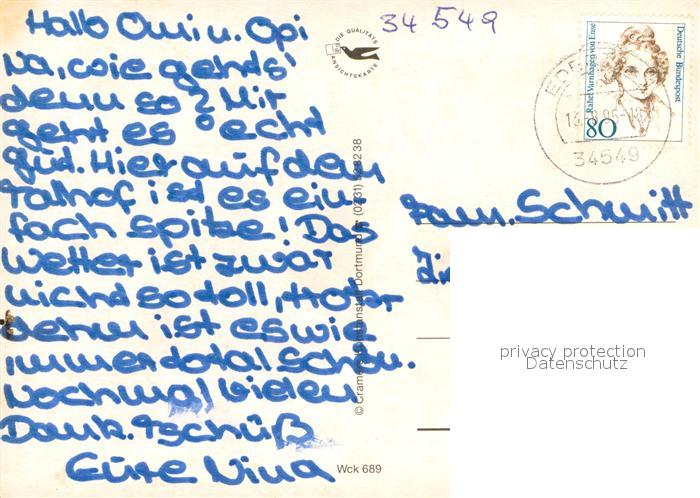 Hallo Omi u. Opi
Na, wie gehts'
denn so? Mir
geht es echt
gut. Hier auf dem
Talhof ist es ein
fach spitze! Das
Wetter ist zwar
nicht so toll, trotz
dehm ist es wie
immer total schön.
Nochmal vielen
Dank. Tschüß
Eure Nina
34 549
DIE QUALITÄTS
ANSICHTSKARTE
© Cramers Kunstanstalt Dortmund (0231) 528238
Wck 689
Rahel Varnhagen von Ense
Deutsche Bundespost
80
34549
Fam. Schmitt
privacy protection
Datenschutz